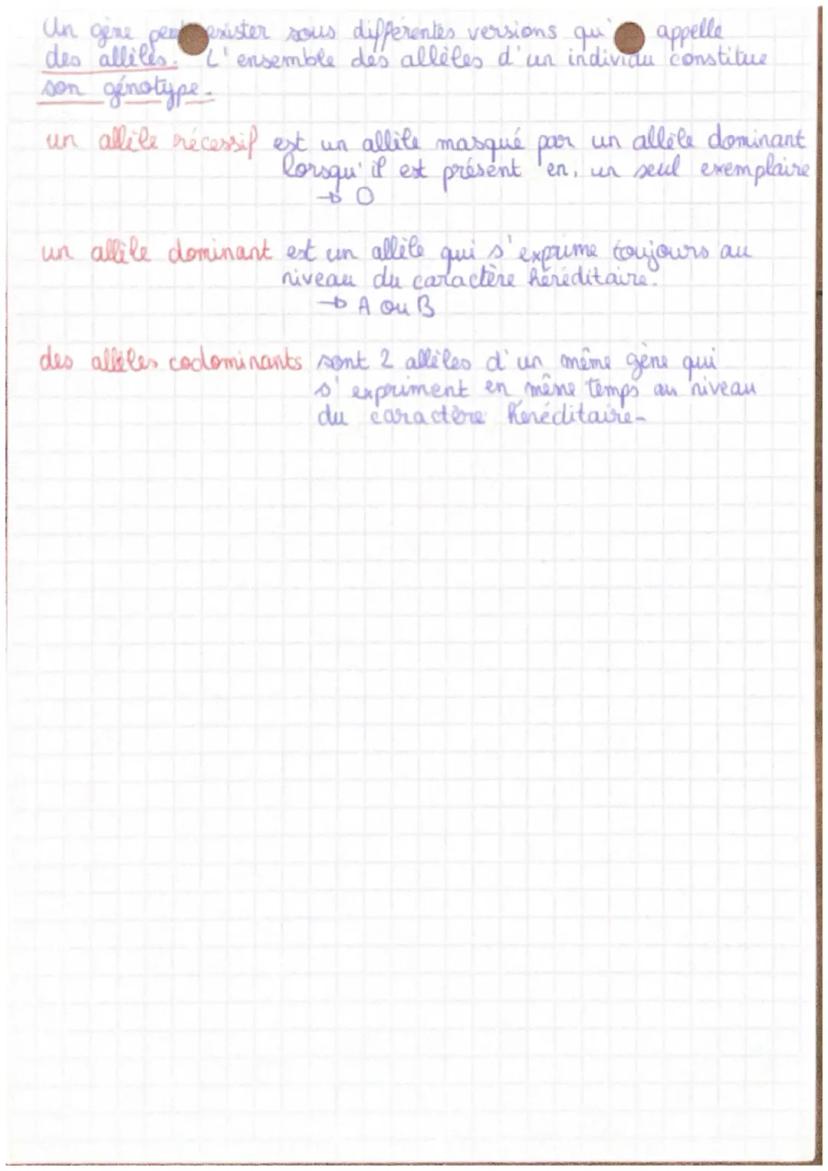 Un gène peut exister sous différentes versions qu' appelle
des allèles. L'ensemble des allèles d'un individu constitue
son génotype.
un allèle récessif est un allèle masqué par un allèle dominant
lorsqu'il est présent en, un seul exemplaire
→ O
un allèle dominant est un allèle qui s'exprime toujours au
niveau du caractère héréditaire.
→ A ou B
des allèles codominants sont 2 allèles d'un même gène qui
s'expriment en même temps au niveau
du caractère héréditaire-